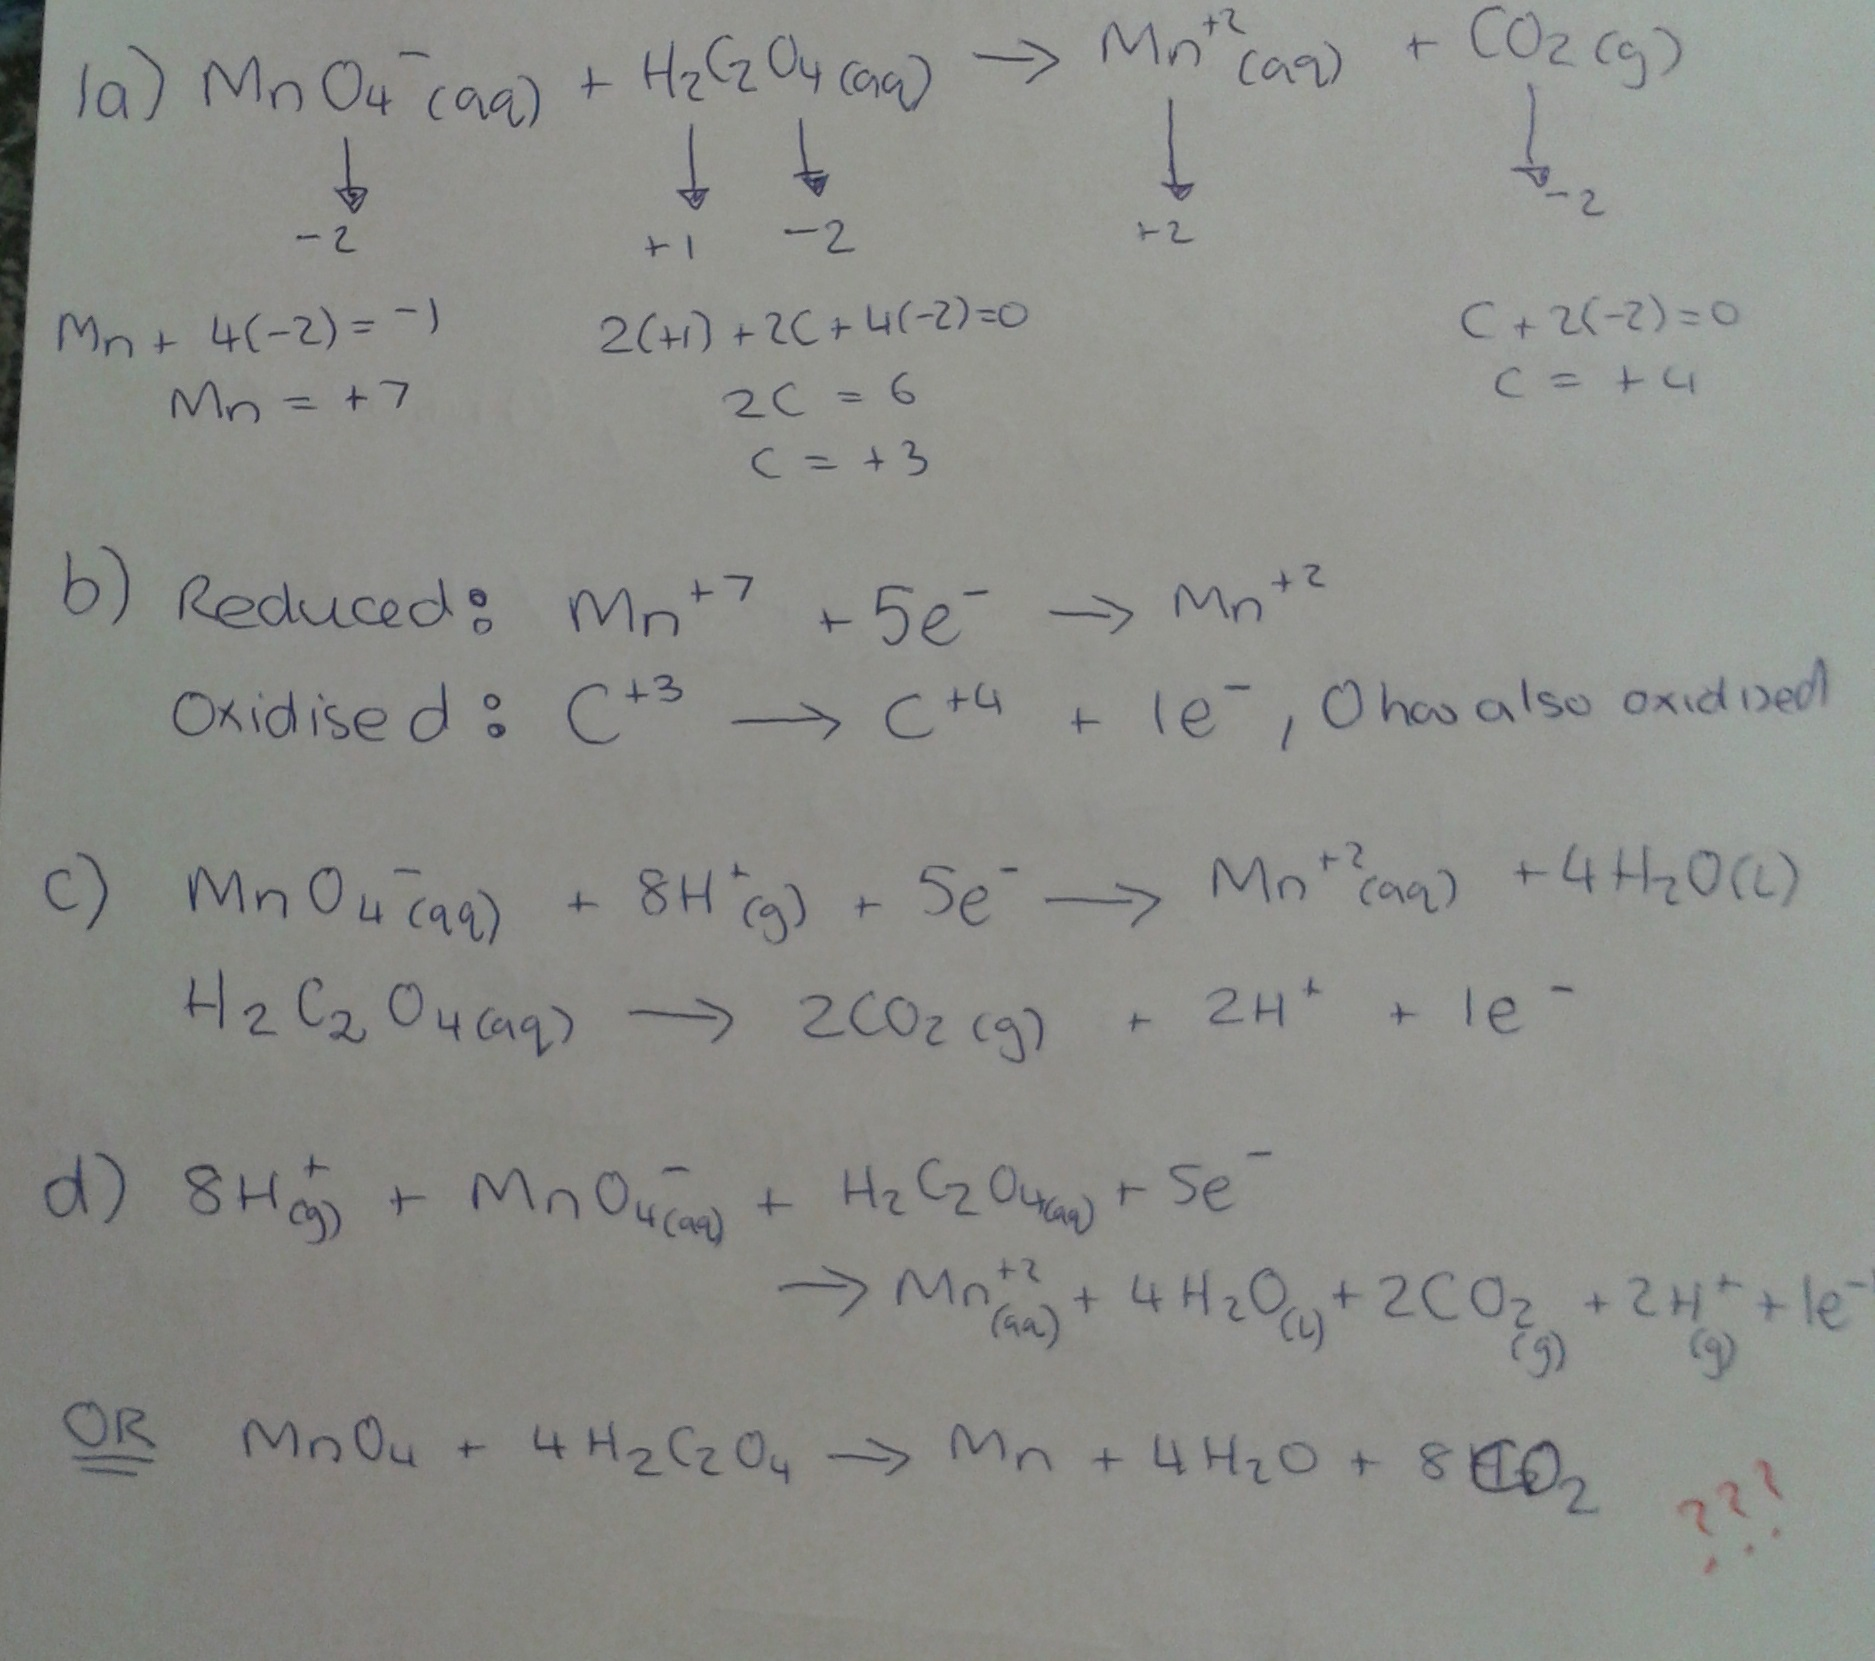 1a) MnO₄⁻(aq) + H₂C₂O₄(aq) → Mn⁺²(aq) + CO₂(g)
↓ ↓ ↓ ↓ ↓
-2 +1 -2 +2 -2
Mn + 4(-2) = -1 2(+1) + 2C + 4(-2)=0 C + 2(-2)=0
Mn = +7 2C = 6 C = +4
C = +3
b) Reduced: Mn⁺⁷ + 5e⁻ → Mn⁺²
Oxidised: C⁺³ → C⁺⁴ + 1e⁻, O has also oxidised
c) MnO₄⁻(aq) + 8H⁺(g) + 5e⁻ → Mn⁺²(aq) + 4H₂O(L)
H₂C₂O₄(aq) → 2CO₂(g) + 2H⁺ + 1e⁻
d) 8H⁺(g) + MnO₄⁻(aq) + H₂C₂O₄(aq) + 5e⁻
→ Mn⁺²(aq) + 4H₂O(L) + 2CO₂(g) + 2H⁺(g) + 1e⁻
OR MnO₄ + 4H₂C₂O₄ → Mn + 4H₂O + 8CO₂
???